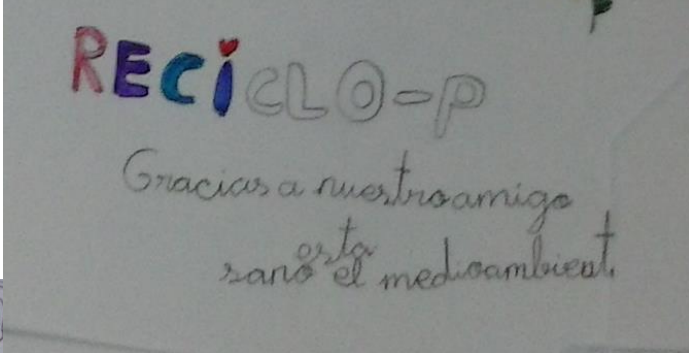 RECICLO-P
Gracias a nuestro amigo
esta
sano el medioambient